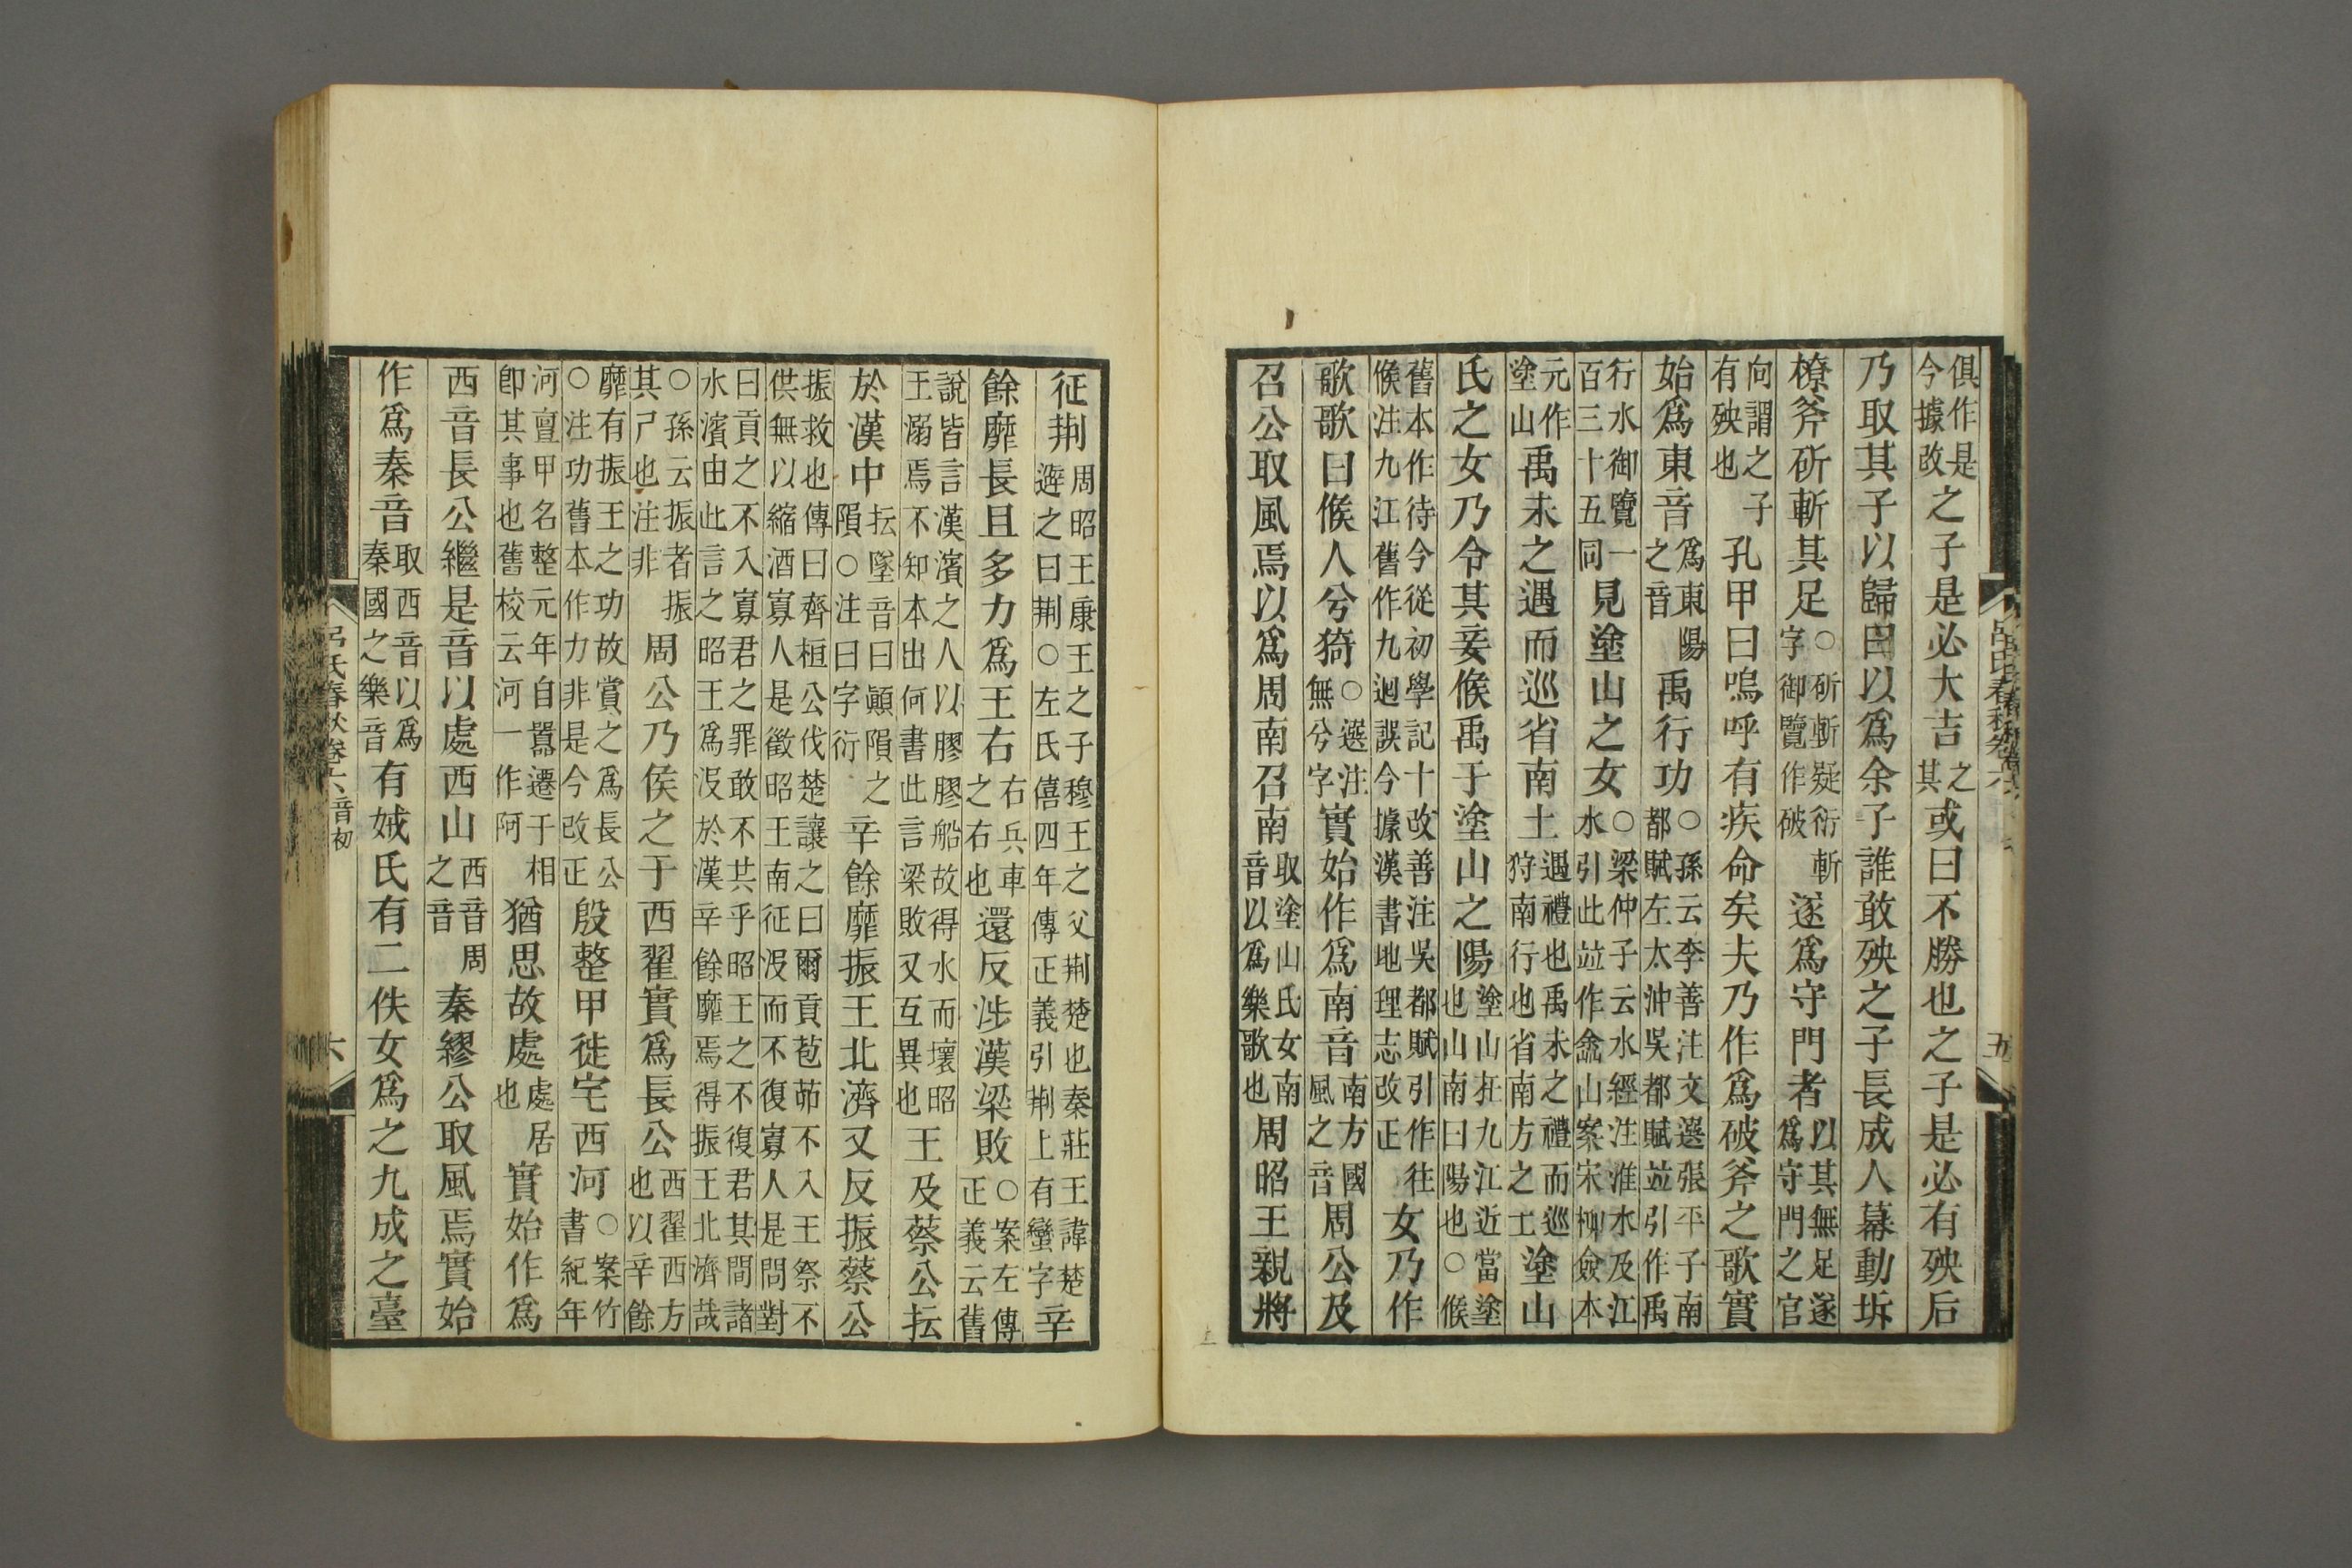 呂氏春秋卷六　五
俱作是今據改之子是必大吉之其或曰不勝也之子是必有殃后
乃取其子以歸曰以爲余子誰敢殃之子長成人幕動坼
橑斧斫斬其足○斫斬疑衍斬字御覽作破遂爲守門者以其無足遂爲守門之官
向謂之子有殃也孔甲曰嗚呼有疾命矣夫乃作爲破斧之歌實
始爲東音爲東陽之音禹行功○孫云李善注文選張平子南都賦左太沖吳都賦竝引作禹
行水御覽一百三十五同見塗山之女○梁仲子云水經注淮水及江水引此竝作嵞山案宋柳僉本
元作塗山禹未之遇而巡省南土遇禮也禹未之禮而巡狩南行也省南方之土塗山
氏之女乃令其妾候禹于塗山之陽塗山在九江近當塗也山南曰陽也○候
舊本作待今從初學記十改善注吳都賦引作往候注九江舊作九迴誤今據漢書地理志改正女乃作
歌歌曰候人兮猗○選注無兮字實始作爲南音南方國風之音周公及
召公取風焉以爲周南召南取塗山氏女南音以爲樂歌也周昭王親將
征荆周昭王康王之子穆王之父荆楚也秦莊王諱楚避之曰荆○左氏僖四年傳正義引荆上有蠻字辛
餘靡長且多力爲王右右兵車之右也還反涉漢梁敗○案左傳正義云舊
說皆言漢濱之人以膠膠船故得水而壞昭王溺焉不知本出何書此言梁敗又互異也王及蔡公抎
於漢中抎墜音曰顚隕之隕○注曰字衍辛餘靡振王北濟又反振蔡公
振救也傳曰齊桓公伐楚讓之曰爾貢苞茆不入王祭不供無以縮酒寡人是徵昭王南征沒而不復寡人是問對
曰貢之不入寡君之罪敢不共乎昭王之不復君其問諸水濱由此言之昭王爲沒於漢辛餘靡焉得振王北濟哉
○孫云振者振其尸也注非周公乃侯之于西翟實爲長公西翟西方也以辛餘
靡有振王之功故賞之爲長公○注功舊本作力非是今改正殷整甲徙宅西河○案竹書紀年
河亶甲名整元年自囂遷于相卽其事也舊校云河一作阿猶思故處處居也實始作爲
西音長公繼是音以處西山西音周之音秦繆公取風焉實始
作爲秦音取西音以爲秦國之樂音有娀氏有二佚女爲之九成之臺
呂氏春秋卷六音初　六